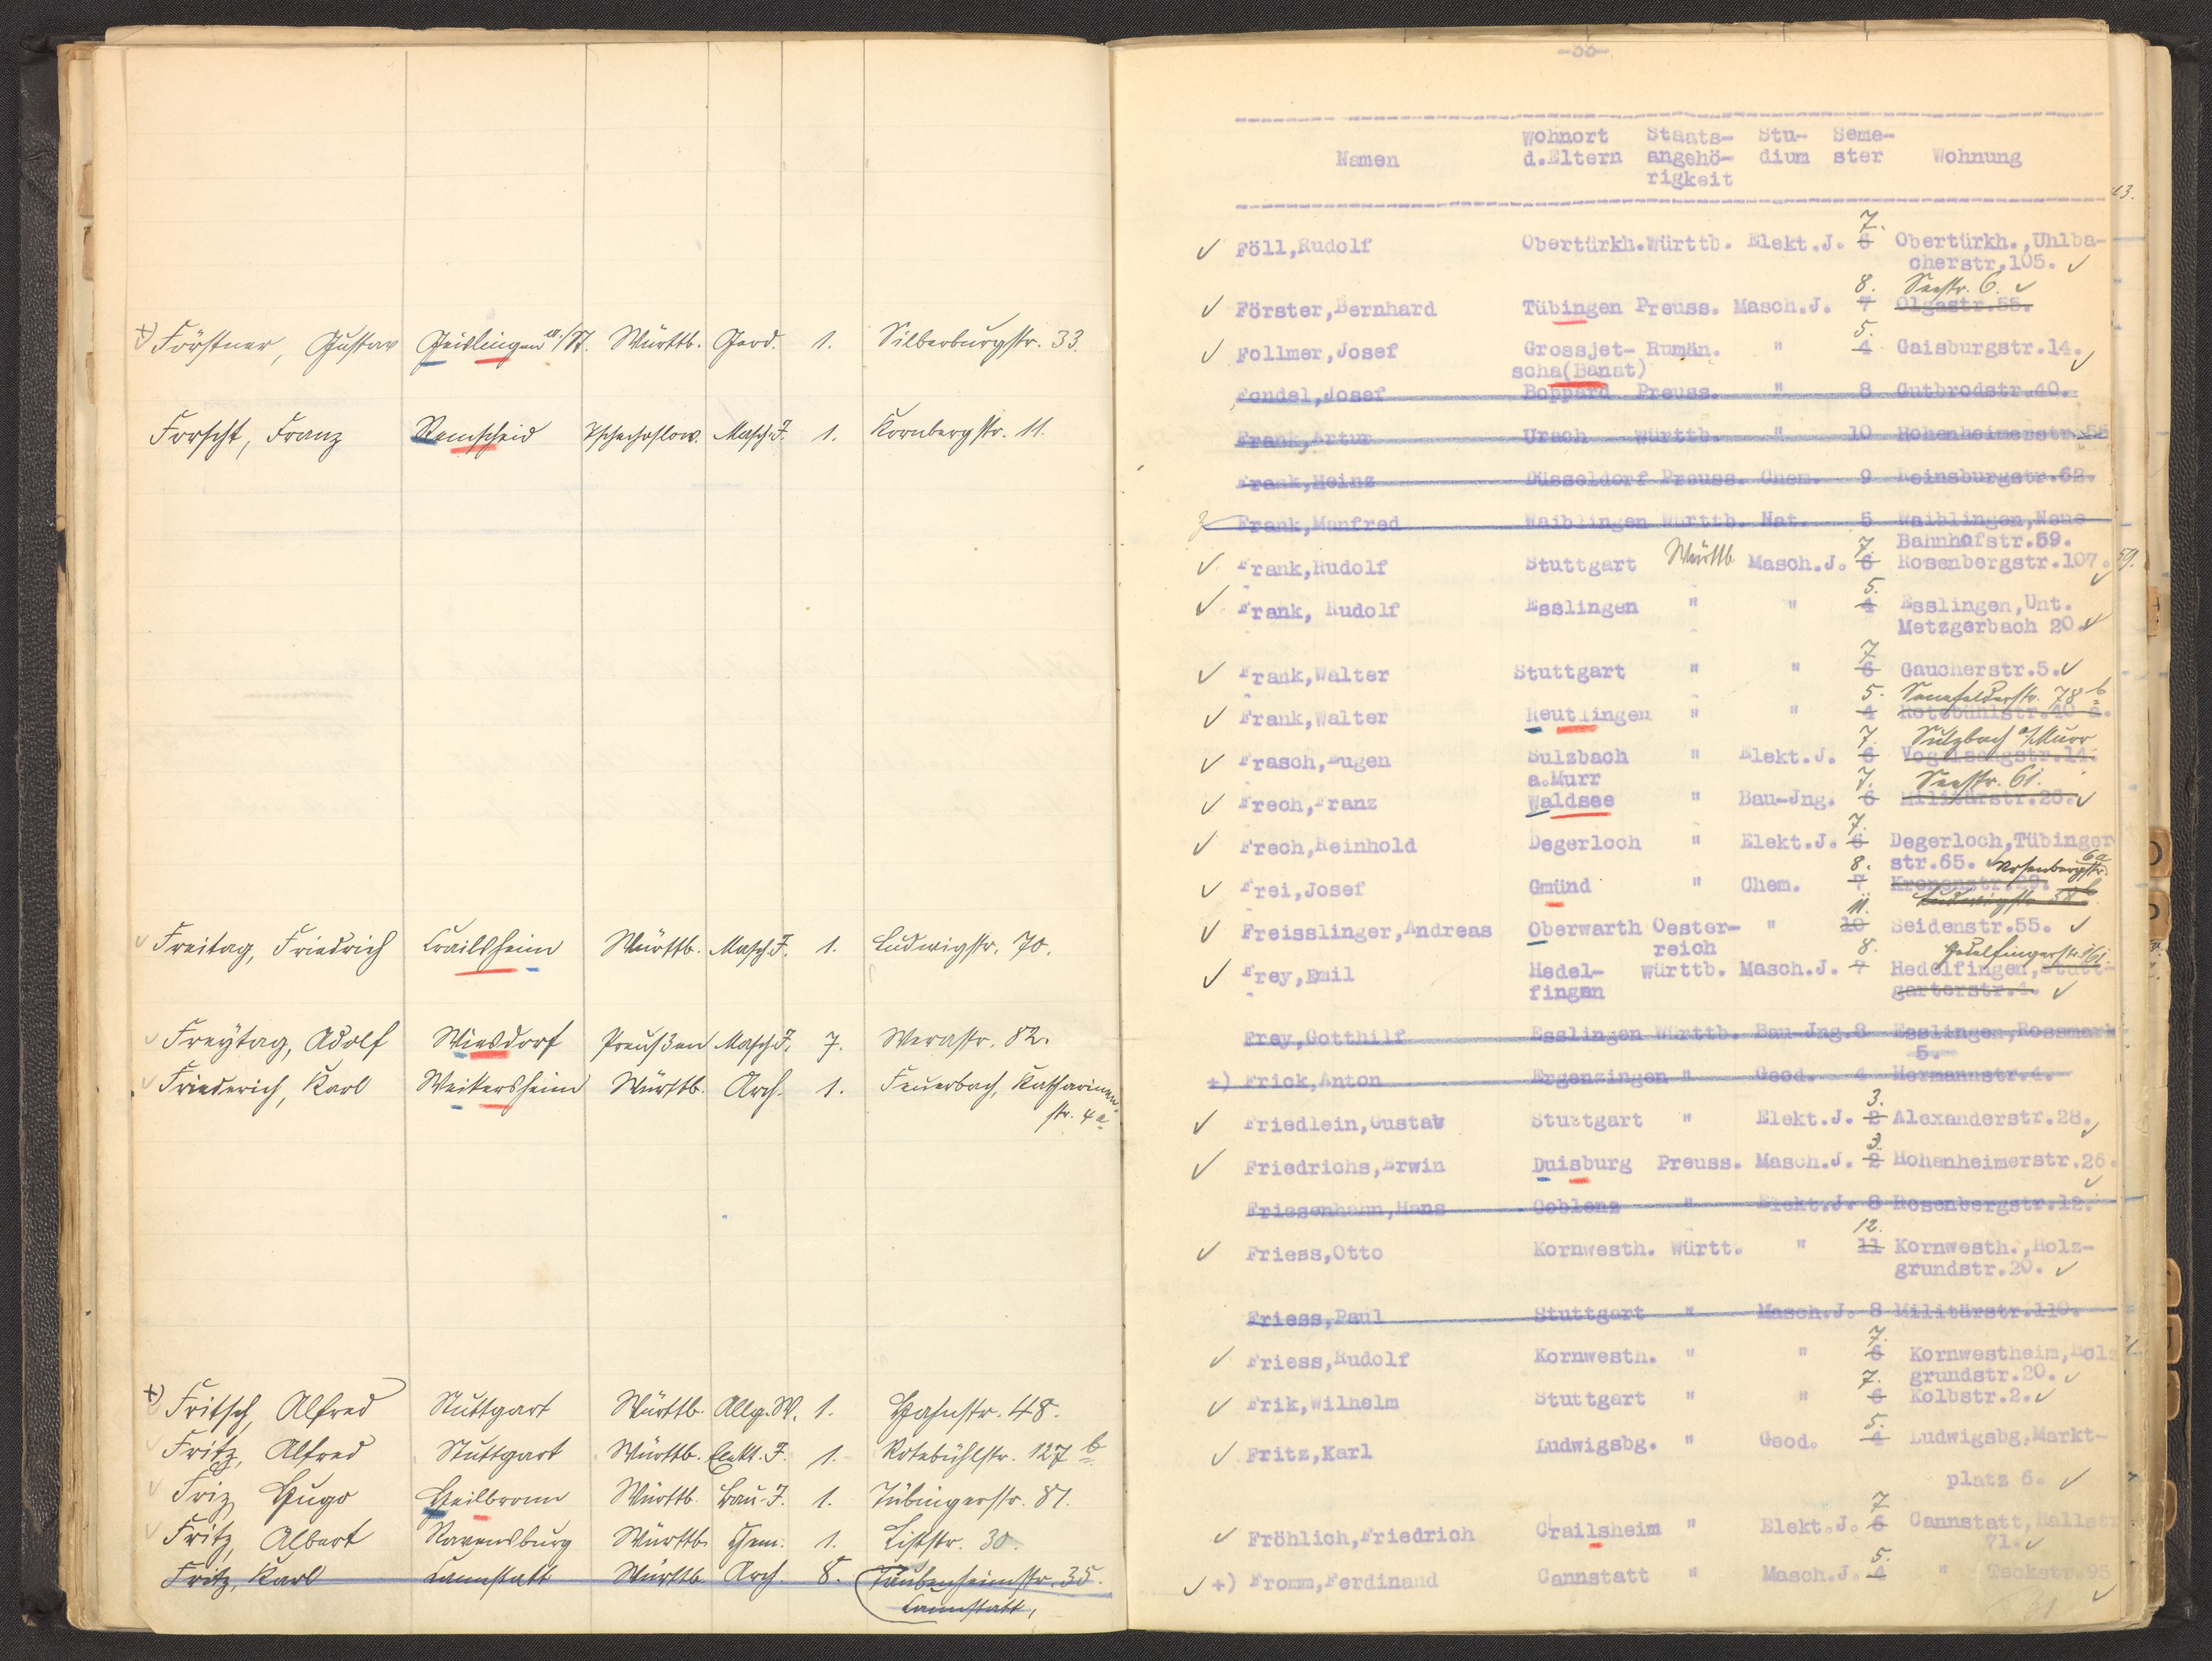 +) Förstner, Gustav Geislingen a/St. Württb. Geod. 1. Silberburgstr. 33.
Forscht, Franz Remscheid Tschechoslow. Masch.J. 1. Kornbergstr. 11.
Freitag, Friedrich Crailsheim Württb. Masch.J. 1. Ludwigstr. 70.
Freytag, Adolf Wiesdorf Preußen Masch.J. 7. Werastr. 82.
Friederich, Karl Weikersheim Württb. Arch. 1. Feuerbach, Katharinen-
str. 4a
+) Fritsch, Alfred Stuttgart Württb. Allg.W. 1. Hahnstr. 48.
Fritz, Alfred Stuttgart Württb. Elekt.J. 1. Rotebühlstr. 127 b
Friz, Hugo Heilbronn Württb. Bau-J. 1. Tübingerstr. 81.
Fritz, Albert Ravensburg Württb. Chem. 1. Liststr. 30.
Fritz, Karl Cannstatt Württb. Arch. 8. Taubenheimstr. 35.
Cannstatt,
-33-
Wohnort Staats- Stu- Seme-
Namen d.Eltern angehö- dium ster Wohnung
rigkeit
7.
✓ Föll,Rudolf Obertürkh.Württb. Elekt.J. 6 Obertürkh.,Uhlba-
cherstr.105. ✓
8. Seestr. 6. ✓
✓ Förster,Bernhard Tübingen Preuss. Masch.J. 7 Olgastr.55.
5.
✓ Follmer,Josef Grossjet- Rumän. " 4 Gaisburgstr.14. ✓
scha(Banat)
Fondel,Josef Boppard Preuss. " 8 Gutbrodstr.40.
Frank,Artur Urach Württb. " 10 Hohenheimerstr.55
Frank,Heinz Düsseldorf Preuss. Chem. 9 Reinsburgstr.62.
Frank,Manfred Waiblingen Württb. Nat. 5 Waiblingen,Neue
Bahnhofstr.59.
7.
✓ Frank,Rudolf Stuttgart Württb Masch.J. 6 Rosenbergstr.107. ✓
5.
✓ Frank, Rudolf Esslingen " " 4 Esslingen,Unt.
Metzgerbach 20. ✓
7
✓ Frank,Walter Stuttgart " " 6 Gaucherstr.5. ✓
5. Senefelderstr. 78 b
✓ Frank,Walter Reutlingen " " 4 Rotebühlstr.40 a.
7. Sulzbach a/Murr
✓ Frasch,Eugen Sulzbach " Elekt.J. 6 Vogelsangstr.14.
a.Murr
7. Seestr. 61.
✓ Frech,Franz Waldsee " Bau-Jng. 6 Militärstr.26. ✓
7.
✓ Frech,Reinhold Degerloch " Elekt.J. 6 Degerloch,Tübinger
str.65. ✓
8. Rosenbergstr. 6a
✓ Frei,Josef Gmünd " Chem. 7 Kronenstr.29.
11.
✓ Freisslinger,Andreas Oberwarth Oester- " 10 Seidenstr.55. ✓
reich
8. Hedelfingerstr. 161.
✓ Frey,Emil Hedel- Württb. Masch.J. 7 Hedelfingen,Stutt-
fingen garterstr.1. ✓
Frey,Gotthilf Esslingen Württb. Bau-Jng.8 Esslingen,Rossmark
5.
+) Frick,Anton Ergenzingen " Geod. 4 Hermannstr.4.
3.
✓ Friedlein,Gustav Stuttgart " Elekt.J. 2 Alexanderstr.28. ✓
3.
✓ Friedrichs,Erwin Duisburg Preuss. Masch.J. 2 Hohenheimerstr.26. ✓
Friesenhahn,Hans Coblenz " Elekt.J. 8 Rosenbergstr.12.
12.
✓ Friess,Otto Kornwesth. Württ. " 11 Kornwesth.,Holz-
grundstr.20. ✓
Friess,Paul Stuttgart " Masch.J. 8 Militärstr.110.
7.
✓ Friess,Rudolf Kornwesth. " " 6 Kornwestheim,Holz
grundstr.20. ✓
7.
✓ Frik,Wilhelm Stuttgart " " 6 Kolbstr.2. ✓
5.
✓ Fritz,Karl Ludwigsbg. " Geod. 4 Ludwigsbg.Markt-
platz 6. ✓
7
✓ Fröhlich,Friedrich Crailsheim " Elekt.J. 6 Cannstatt,Hallstr
71. ✓
5.
✓ +) Fromm,Ferdinand Cannstatt " Masch.J. 4 " Teckstr.95 ✓